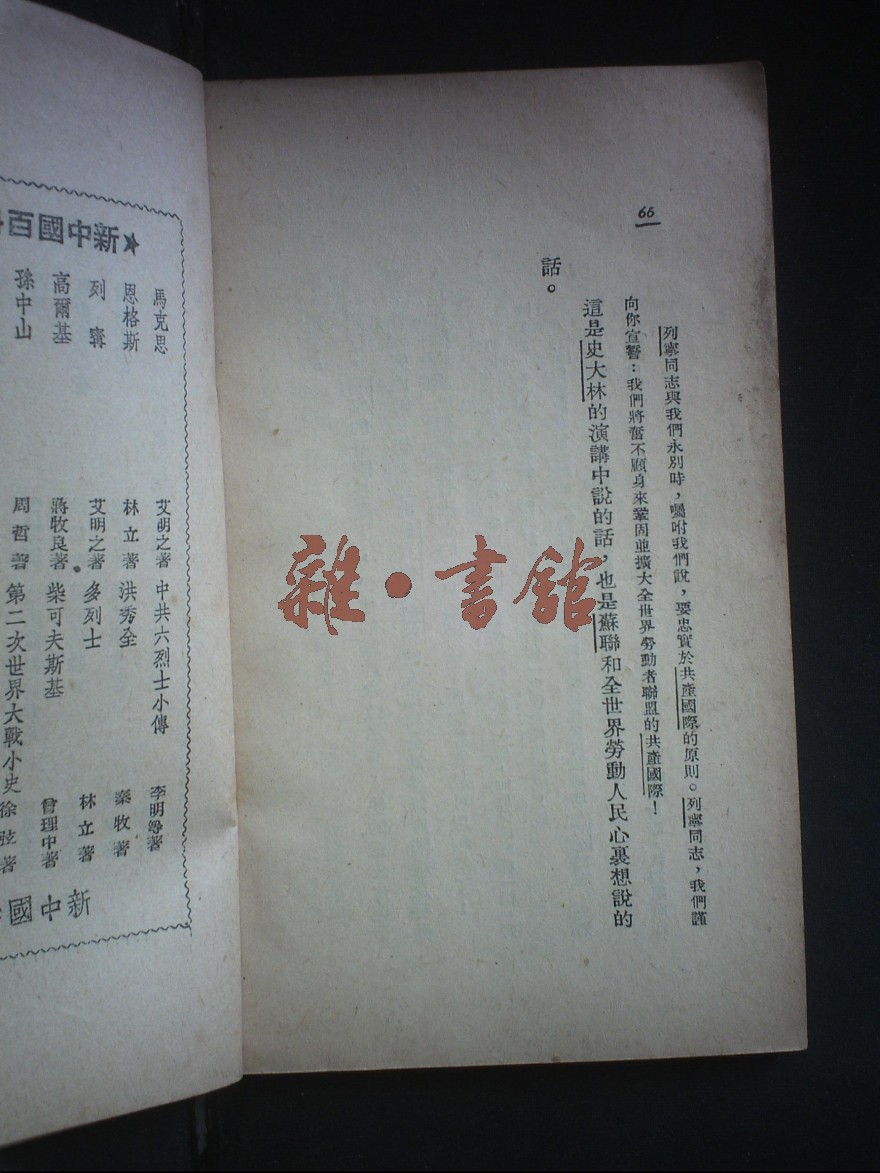 66
列寧同志與我們永別時，囑咐我們說，要忠實於共產國際的原則。列寧同志，我們謹
向你宣誓：我們將奮不顧身來鞏固並擴大全世界勞動者聯盟的共產國際！
這是史大林的演講中說的話，也是蘇聯和全世界勞動人民心裏想說的
話。
雜・書館
★新中國百
馬克思 艾明之著 中共六烈士小傳 李明著
恩格斯 林立著 洪秀全 秦牧著
列寧 艾明之著 多列士 林立著
高爾基 蔣牧良著 柴可夫斯基 曾理中著
孫中山 周哲著 第二次世界大戰小史 徐弦著
新中國